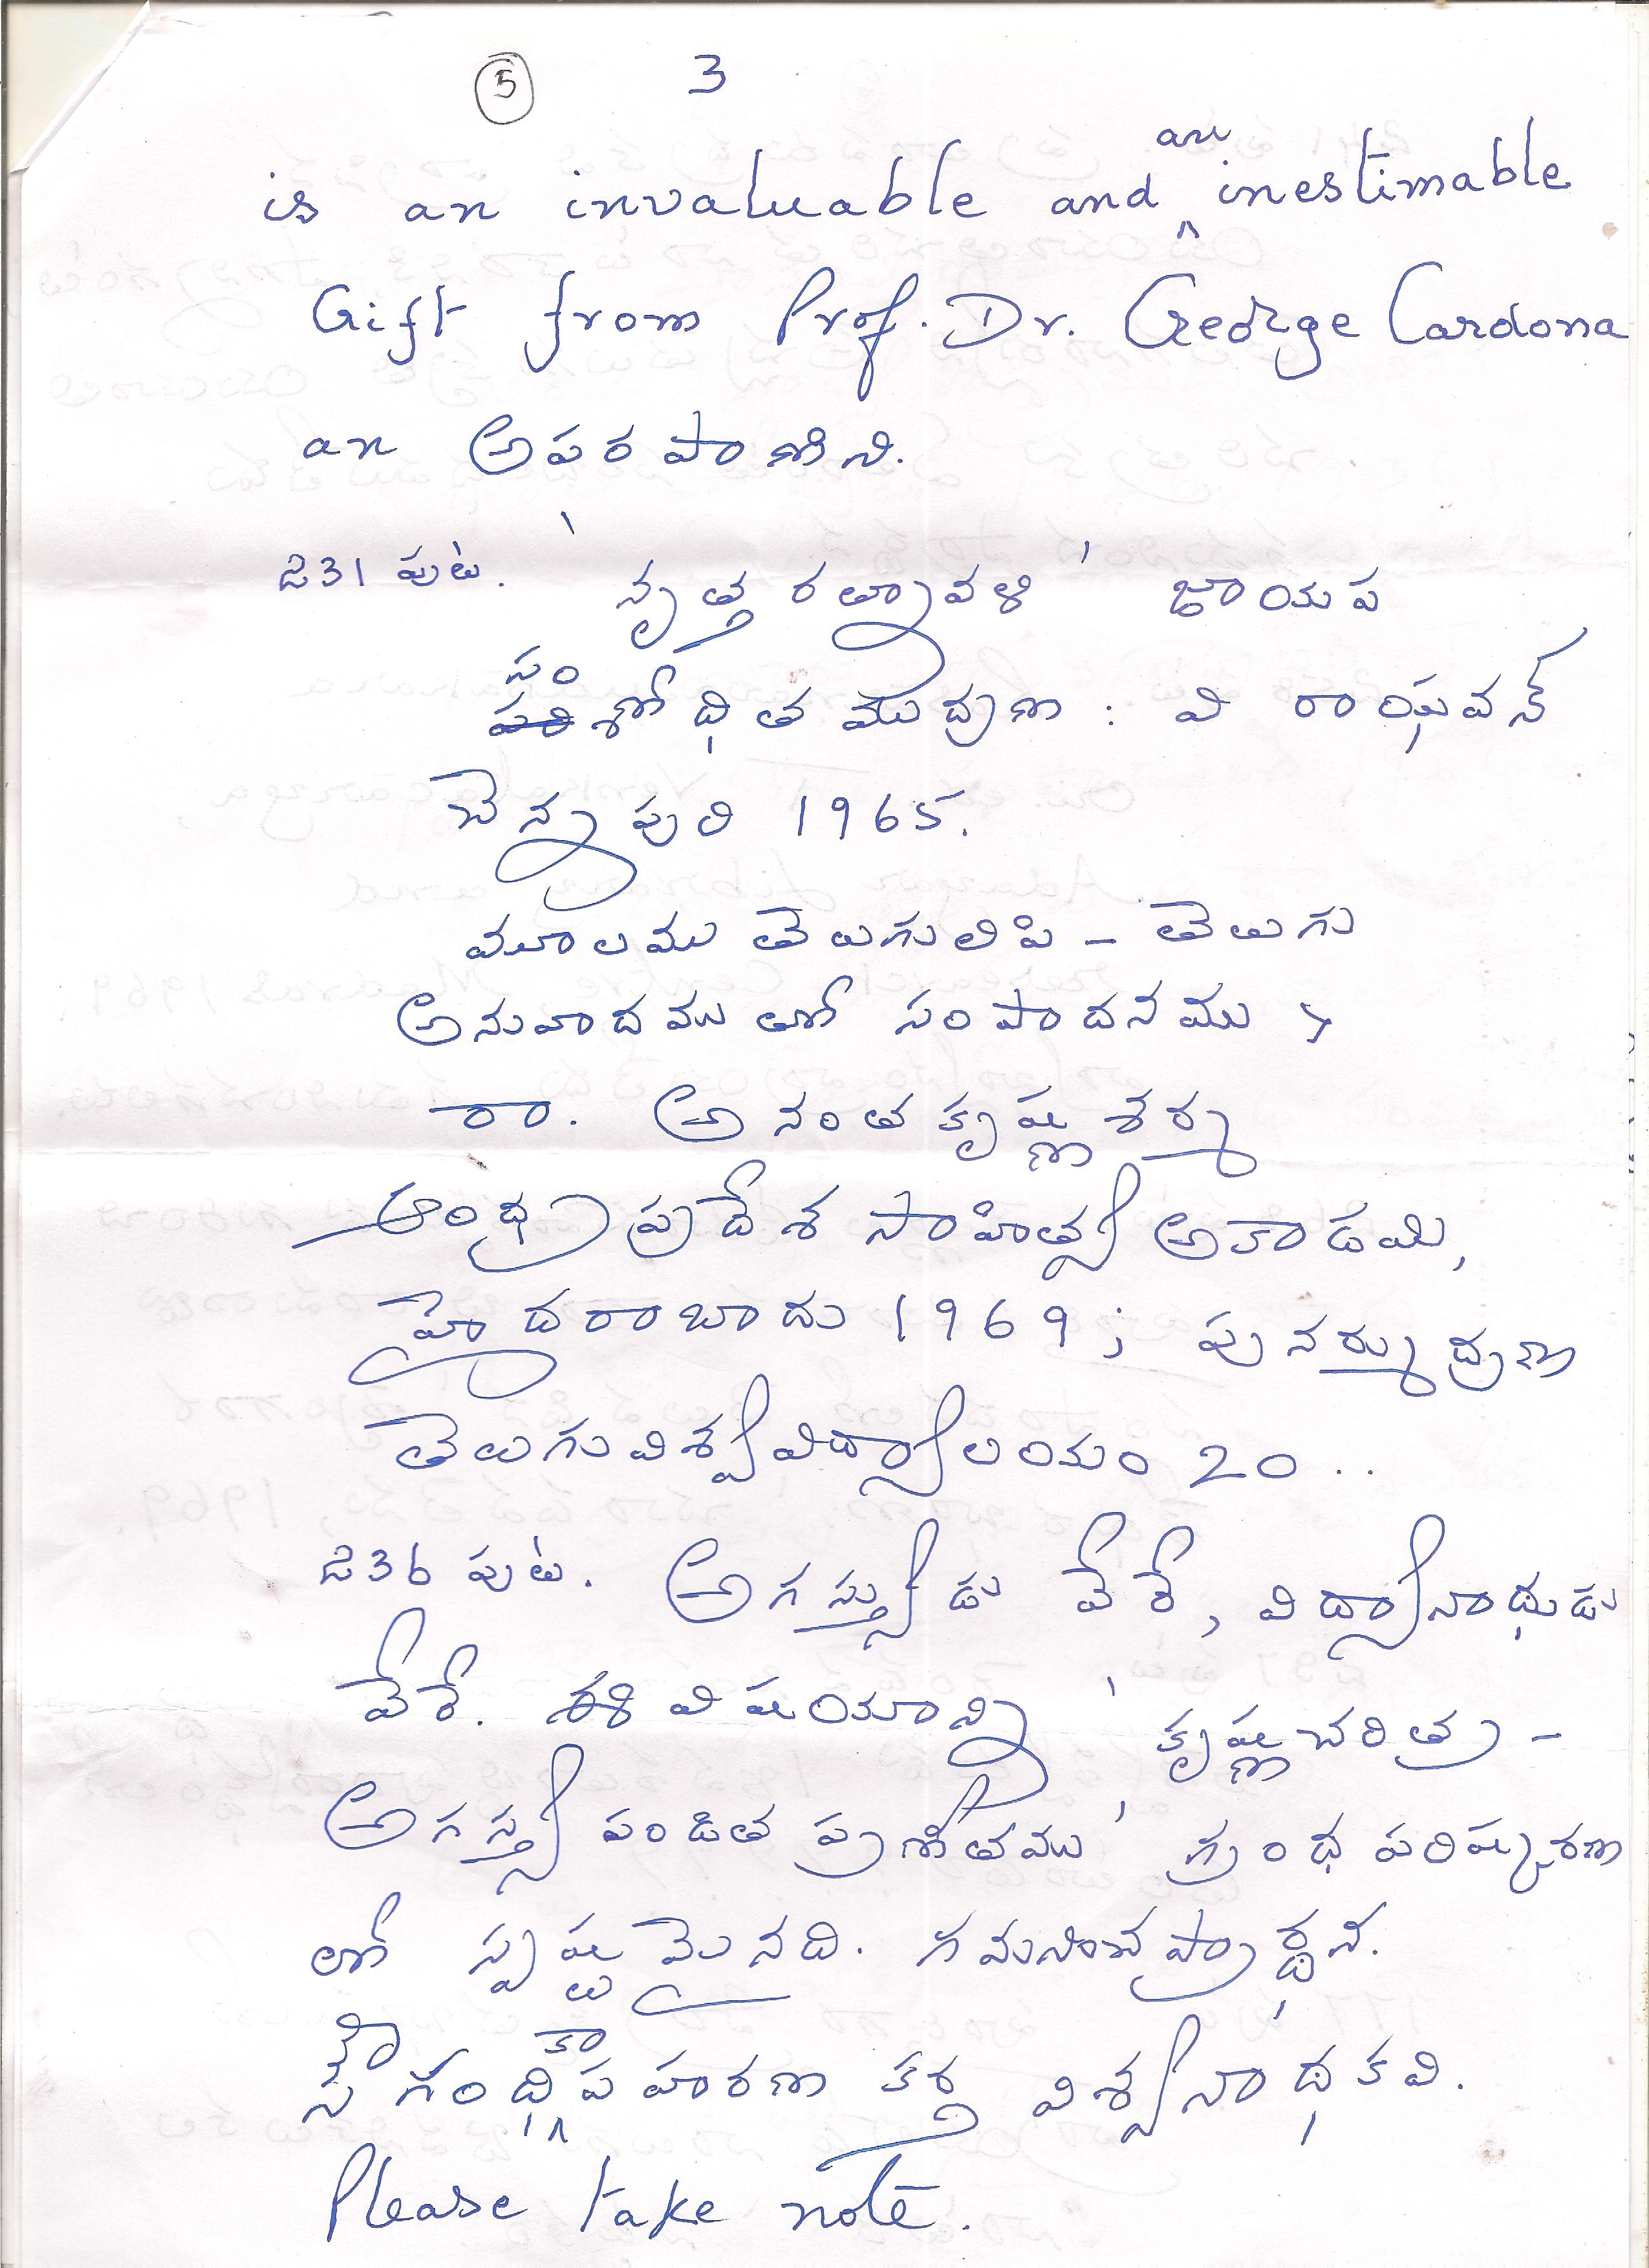 5 3
is an invaluable and an inestimable
Gift from Prof. Dr. George Cardona
an అపర పాణిని.
231 పుట. 'నృత్త రత్నావళి' జాయప
సంశోధిత ముద్రణ : వి రాఘవన్
చెన్నపురి 1965.
మూలము తెలుగులిపి - తెలుగు
అనువాదముతో సంపాదనము
రా. అనంతకృష్ణశర్మ
ఆంధ్రప్రదేశ సాహిత్య అకాడమి,
హైదరాబాదు 1969; పునర్ముద్రణ
తెలుగువిశ్వవిద్యాలయం 20 ..
236 పుట. అగస్త్యుడు వేరే, విద్యానాథుడు
వేరే. ఈ విషయాన్ని 'కృష్ణచరిత్ర -
అగస్త్య పండిత ప్రణీతము' గ్రంథ పరిష్కరణ
లో స్పష్టమైనది. గమనించప్రార్థన.
సౌగంధికాపహరణ కర్త విశ్వనాథకవి.
Please take note.